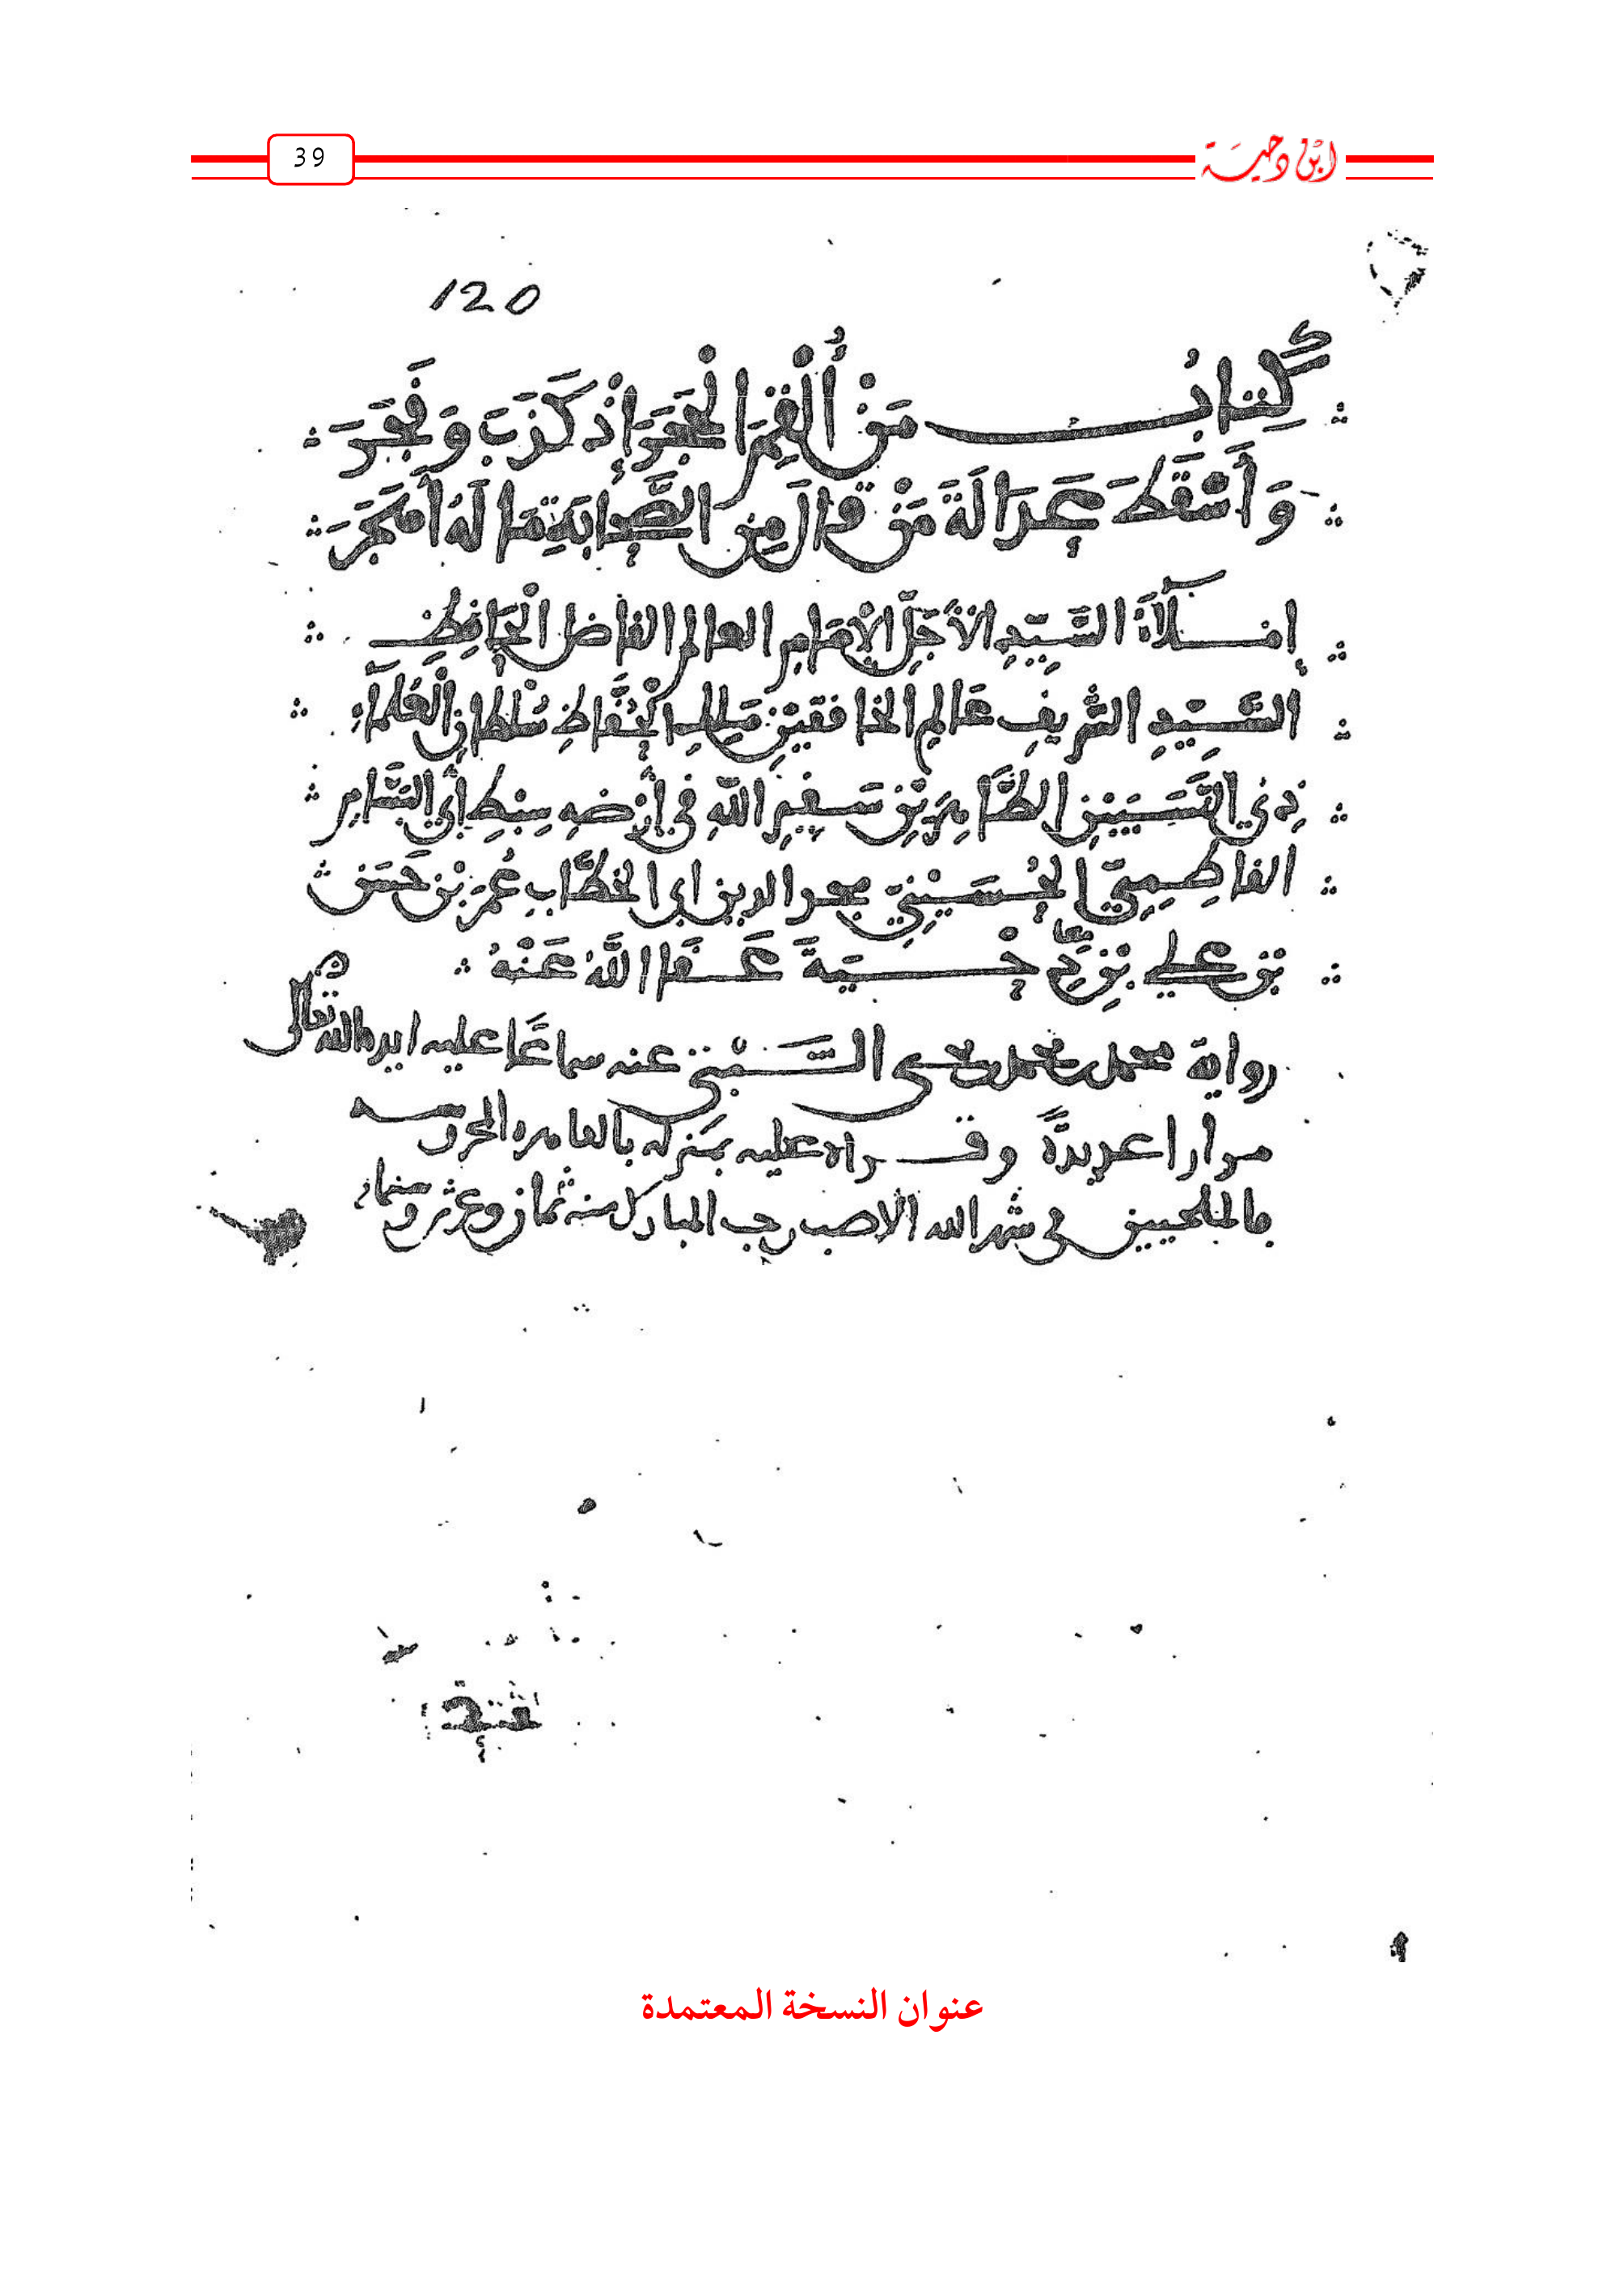 ابن دحية
39
120
كِتَابُ مَنْ أُلْقِمَ الْحَجَرَ إِذْ كَذَبَ وَفَجَرَ
وَأَسْقَطَ عَدَالَةَ مَنْ قَالَ مِنَ الصَّحَابَةِ مَا لَهُ أَهَجَرَ
إِمْلَاءُ السَّيِّدِ الْأَجَلِّ الْإِمَامِ العالم الفاضل الْحَافِظِ
السَّيِّدِ الشَّرِيفِ عَالِمِ الخافقين مَلِكِ الْحُفَّاظِ سُلْطَانِ الْعُلَمَاءِ
ذِي النَّسَبَيْنِ الطَّاهِرَيْنِ سَفِيرِ اللَّهِ فِي أَرْضِهِ سِبْطِ أَبِي البَسَّامِ
الفاطِمِيِّ الْحُسَيْنِيِّ مجد الدين ابي الخَطَّابِ عُمَرَ بْنِ حَسَنِ
بْنِ عَلِيِّ بْنِ دِحْيَةَ عَفَا اللَّهُ عَنْهُ
رواية محمد بن محمد بن يحيى السَّبْتِيِّ عنه سماعًا عليه ايده الله تعالى
مرارا عديدةً وقراه عليه بمنزله بالقاهره المحروسه
في شهر الله الاصب رجب المبارك سنة ثمان وعشر وستمايه
عنوان النسخة المعتمدة